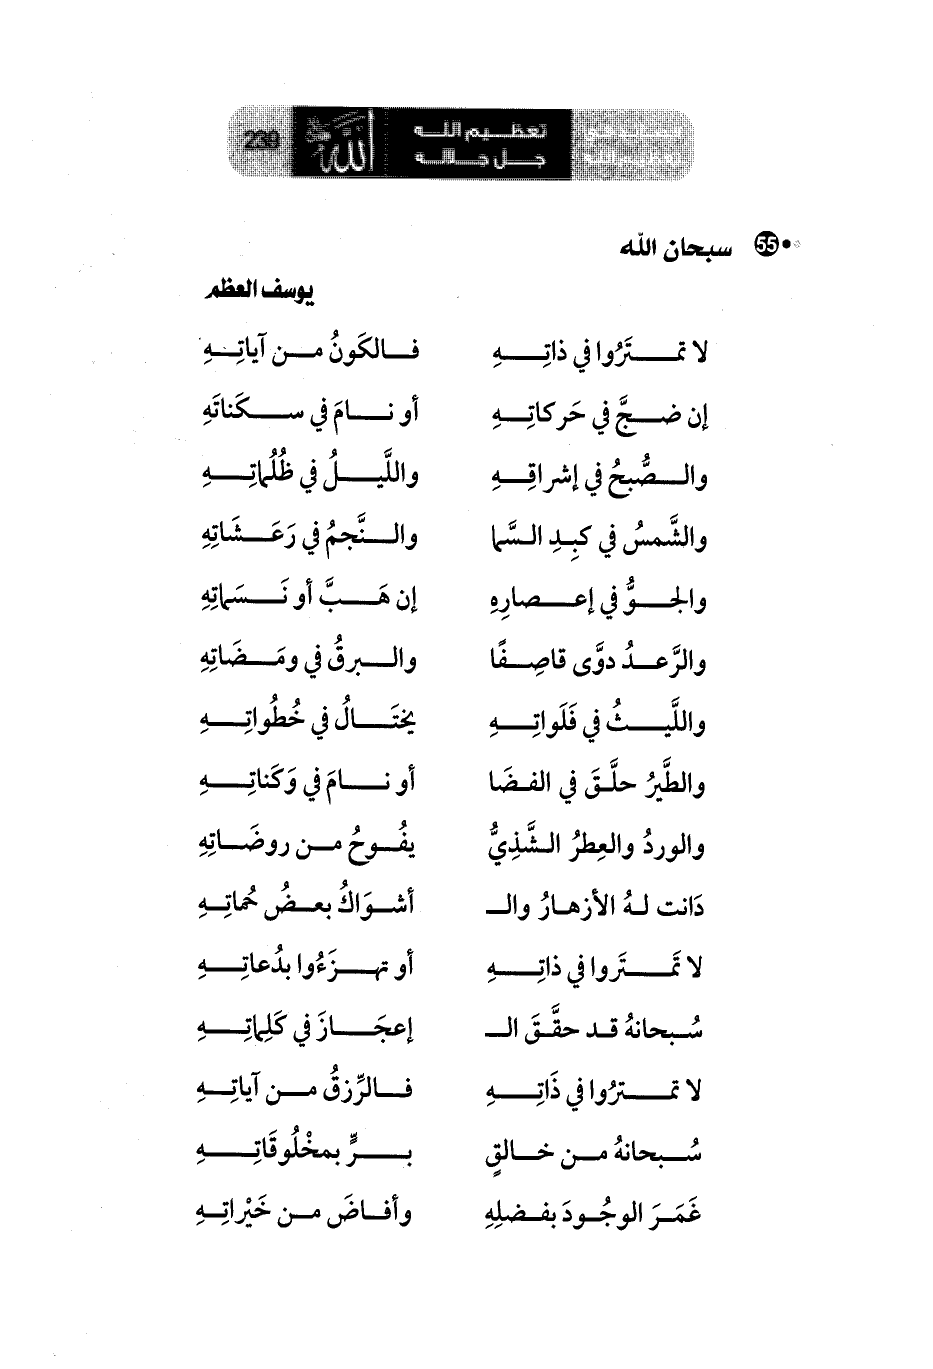 239
تعظيم الله
جل جلاله
55 سبحان الله
يوسف العظم
لا تمتَرُوا في ذاتِهِ فالكَونُ من آياتِهِ
إن ضجَّ في حَركاتِهِ أو نامَ في سكَناتَهِ
والصُّبحُ في إشراقِهِ واللَّيلُ في ظُلُماتِهِ
والشَّمسُ في كبِدِ السَّما والنَّجمُ في رَعَشَاتِهِ
والجوُّ في إعصارِهِ إن هَبَّ أو نَسَماتِهِ
والرَّعدُ دوَّى قاصِفًا والبرقُ في ومَضَاتِهِ
واللَّيثُ في فَلَواتِهِ يختَالُ في خُطُواتِهِ
والطَّيرُ حلَّقَ في الفضَا أو نامَ في وَكَناتِهِ
والوردُ والعِطرُ الشَّذِيُّ يفُوحُ من روضَاتِهِ
دَانت لهُ الأزهارُ والـ أشوَاكُ بعضُ حُماتِهِ
لا تَمتَروا في ذاتِهِ أو تهزَءُوا بدُعاتِهِ
سُبحانهُ قد حقَّقَ الـ إعجَازَ في كَلِماتِهِ
لا تمترُوا في ذَاتِهِ فالرِّزقُ من آياتِهِ
سُبحانهُ من خالقٍ برٍّ بمخْلُوقَاتِهِ
غَمَرَ الوجُودَ بفضلِهِ وأفاضَ من خَيْراتِهِ